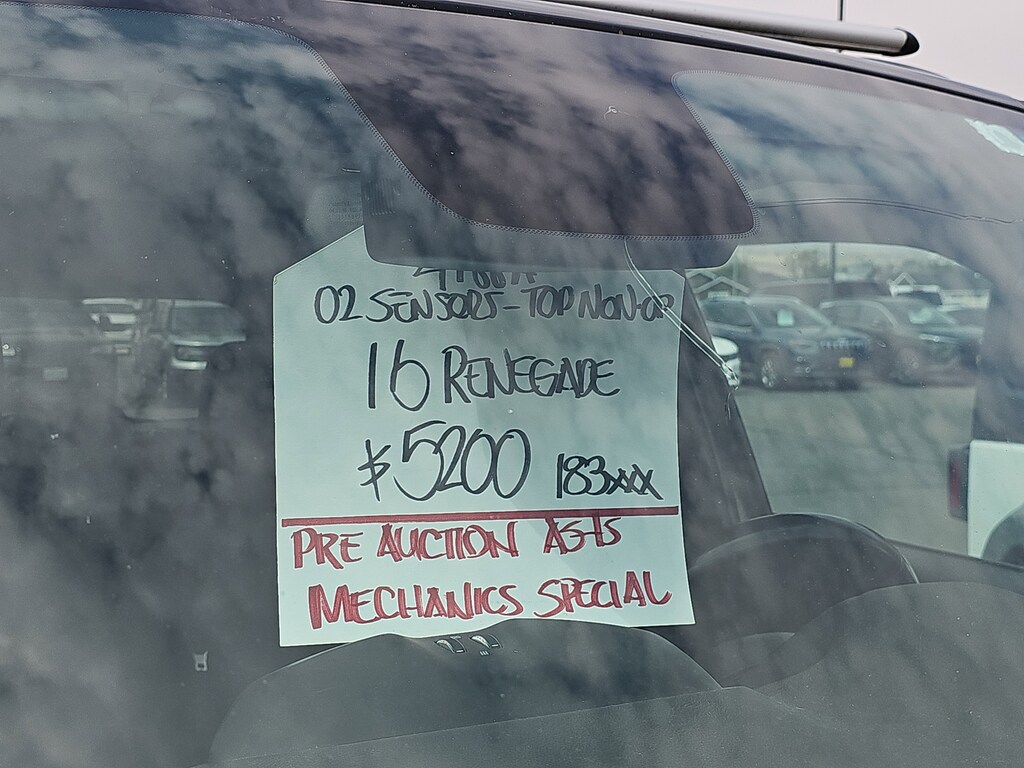 02 SENSORS - TOP NON-OP
16 RENEGADE
$5200 183xxx
PRE AUCTION AS-IS
MECHANICS SPECIAL